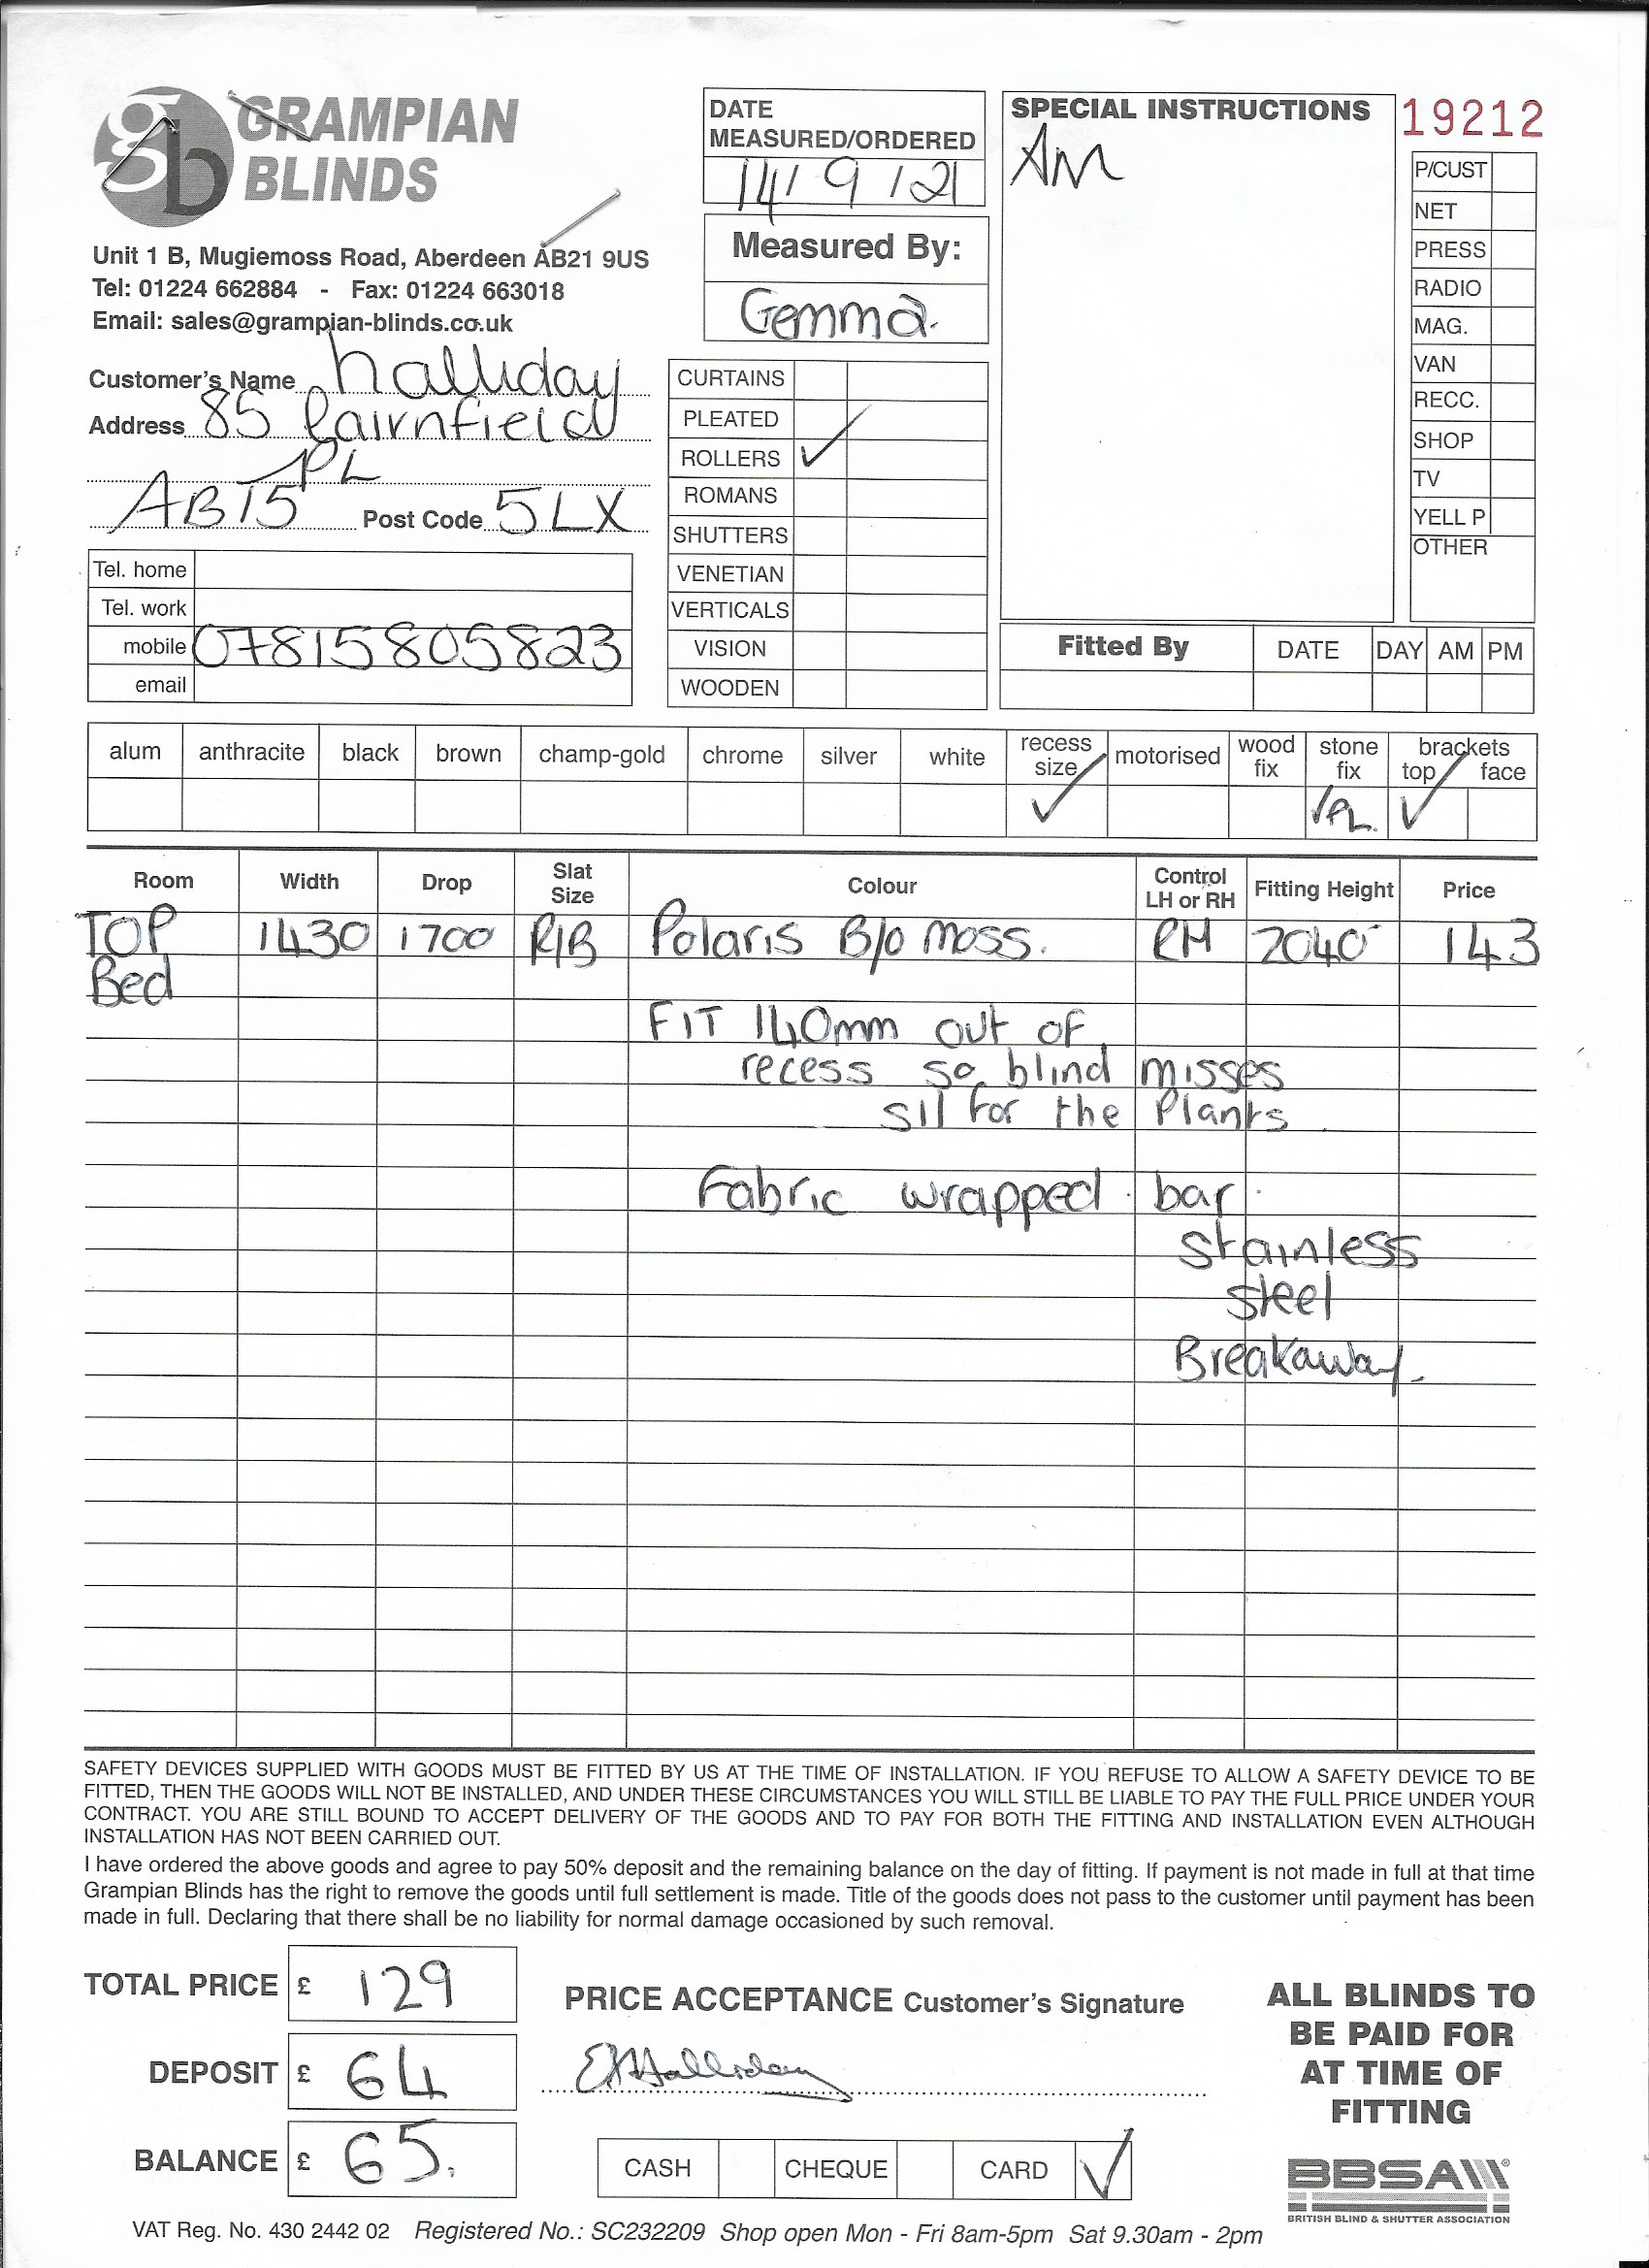 GRAMPIAN
BLINDS
Unit 1 B, Mugiemoss Road, Aberdeen AB21 9US
Tel: 01224 662884 - Fax: 01224 663018
Email: sales@grampian-blinds.co.uk
Customer's Name halliday
Address 85 Cairnfield
PL
AB15 Post Code 5LX
Tel. home
Tel. work
mobile 07815805823
email
DATE
MEASURED/ORDERED
14/9/21
Measured By:
Gemma.
CURTAINS
PLEATED
ROLLERS ✓
ROMANS
SHUTTERS
VENETIAN
VERTICALS
VISION
WOODEN
SPECIAL INSTRUCTIONS
AM
19212
P/CUST
NET
PRESS
RADIO
MAG.
VAN
RECC.
SHOP
TV
YELL P
OTHER
Fitted By DATE DAY AM PM
alum anthracite black brown champ-gold chrome silver white recess size motorised wood fix stone fix brackets top face
✓ √PL. ✓
Room Width Drop Slat Size Colour Control LH or RH Fitting Height Price
TOP 1430 1700 R/B Polaris B/o moss. RH 2040 143
Bed
FIT 140mm out of
recess so blind misses
sil for the Plants.
Fabric wrapped bar.
stainless
steel
Breakaway.
SAFETY DEVICES SUPPLIED WITH GOODS MUST BE FITTED BY US AT THE TIME OF INSTALLATION. IF YOU REFUSE TO ALLOW A SAFETY DEVICE TO BE
FITTED, THEN THE GOODS WILL NOT BE INSTALLED, AND UNDER THESE CIRCUMSTANCES YOU WILL STILL BE LIABLE TO PAY THE FULL PRICE UNDER YOUR
CONTRACT. YOU ARE STILL BOUND TO ACCEPT DELIVERY OF THE GOODS AND TO PAY FOR BOTH THE FITTING AND INSTALLATION EVEN ALTHOUGH
INSTALLATION HAS NOT BEEN CARRIED OUT.
I have ordered the above goods and agree to pay 50% deposit and the remaining balance on the day of fitting. If payment is not made in full at that time
Grampian Blinds has the right to remove the goods until full settlement is made. Title of the goods does not pass to the customer until payment has been
made in full. Declaring that there shall be no liability for normal damage occasioned by such removal.
TOTAL PRICE £ 129
DEPOSIT £ 64
BALANCE £ 65.
PRICE ACCEPTANCE Customer's Signature
E Halliday
CASH CHEQUE CARD ✓
ALL BLINDS TO
BE PAID FOR
AT TIME OF
FITTING
BBSA
BRITISH BLIND & SHUTTER ASSOCIATION
VAT Reg. No. 430 2442 02 Registered No.: SC232209 Shop open Mon - Fri 8am-5pm Sat 9.30am - 2pm